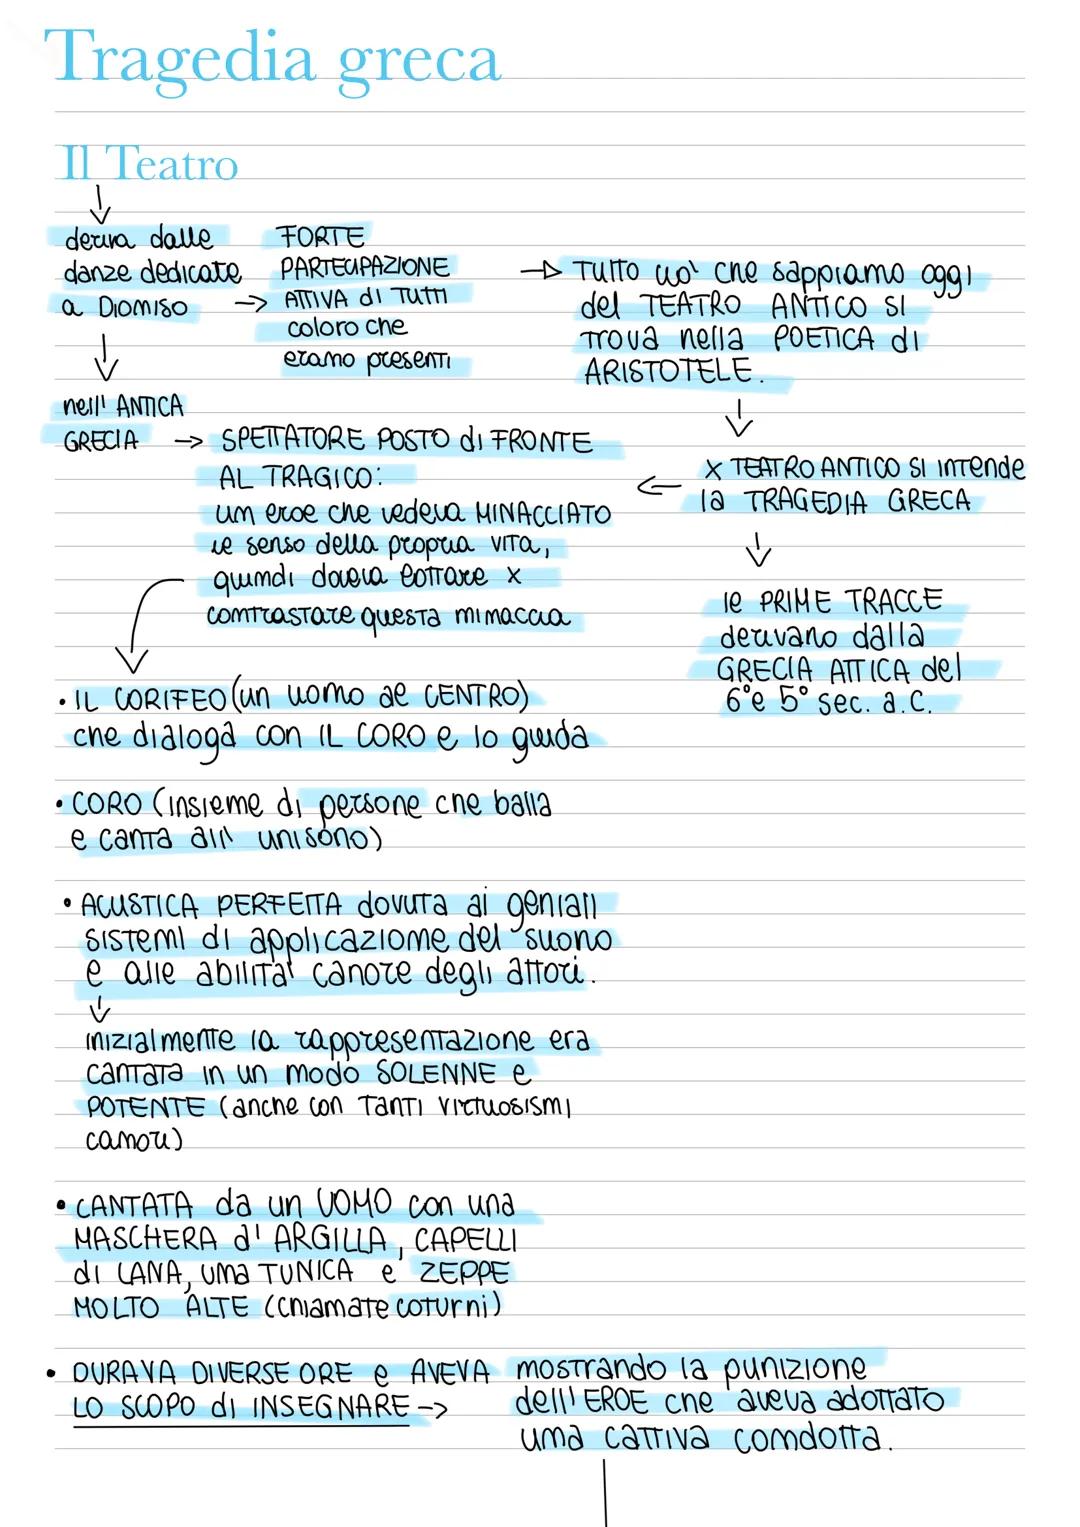 Tragedia greca
Il Teatro
↓
deriva dalle
danze dedicate
a Dioniso
→ FORTE
PARTECIPAZIONE
ATTIVA di TUTTI
coloro che
erano presenti
→ TUTTO ciò che sappiamo oggi
del TEATRO ANTICO SI
TROVA nella POETICA di
ARISTOTELE.
↓
nell' ANTICA
GRECIA → SPETTATORE POSTO di FRONTE
AL TRAGICO:
un eroe che vedeva MINACCIATO
il senso della propria VITA,
quindi doveva lottare x
contrastare questa minaccia
↓
x TEATRO ANTICO SI intende
la TRAGEDIA GRECA
←
↓
le PRIME TRACCE
derivano dalla
GRECIA ATTICA del
6° e 5° sec. a.C.
↓
• IL CORIFEO (un uomo al CENTRO)
che dialoga con IL CORO e lo guida
• CORO (insieme di persone che balla
e canta all' unisono)
• ACUSTICA PERFETTA dovuta ai geniali
sistemi di applicazione del suono
e alle abilità canore degli attori.
↓
inizialmente la rappresentazione era
cantata in un modo SOLENNE e
POTENTE (anche con TANTI virtuosismi
canori)
• CANTATA da un UOMO con una
MASCHERA d' ARGILLA, CAPELLI
di LANA, una TUNICA e ZEPPE
MOLTO ALTE (chiamate coturni)
• DURAVA DIVERSE ORE e AVEVA
LO SCOPO di INSEGNARE →
mostrando la punizione
dell' EROE che aveva adottato
una cattiva condotta.